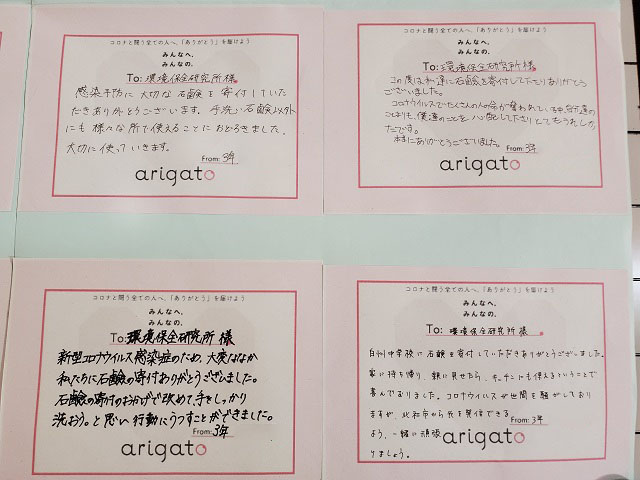 コロナと闘う全ての人へ、「ありがとう」を届けよう
みんなへ、
みんなの。
To: 環境保全研究所様
感染予防に大切な石鹸を寄付していた
だきありがとうございます。手洗い石鹸以外
にも様々な所で使えることにおどろきました。
大切に使っていきます。
From: 3年
arigato
コロナと闘う全ての人へ、「ありがとう」を届けよう
みんなへ、
みんなの。
To: 環境保全研究所様
この度は私達に石鹸を寄付してくださりありがとう
ございました。
コロナウイルスでたくさんの人の命が奪われている中、自分達の
ことよりも、僕達のことを心配してくださりとてもうれしかっ
たです。
本当にありがとうございました。
From: 3年
arigato
コロナと闘う全ての人へ、「ありがとう」を届けよう
みんなへ、
みんなの。
To: 環境保全研究所 様
新型コロナウイルス感染症のため、大変ななか
私たちに石鹸の寄付ありがとうございました。
石鹸の寄付のおかげで改めて、手をしっかり
洗おう。と思い行動にうつすことができました。
From: 3年
arigato
コロナと闘う全ての人へ、「ありがとう」を届けよう
みんなへ、
みんなの。
To: 環境保全研究所 様
中学校に石鹸を寄付していただきありがとうございました。
家に持ち帰り、親に見せたら、キッチンにも使えるということで
喜んでおりました。コロナウイルスが世間を騒がしており
ますが、北和市から元を発信できる
よう、一緒に頑張
りましょう。
From: 3年
arigato